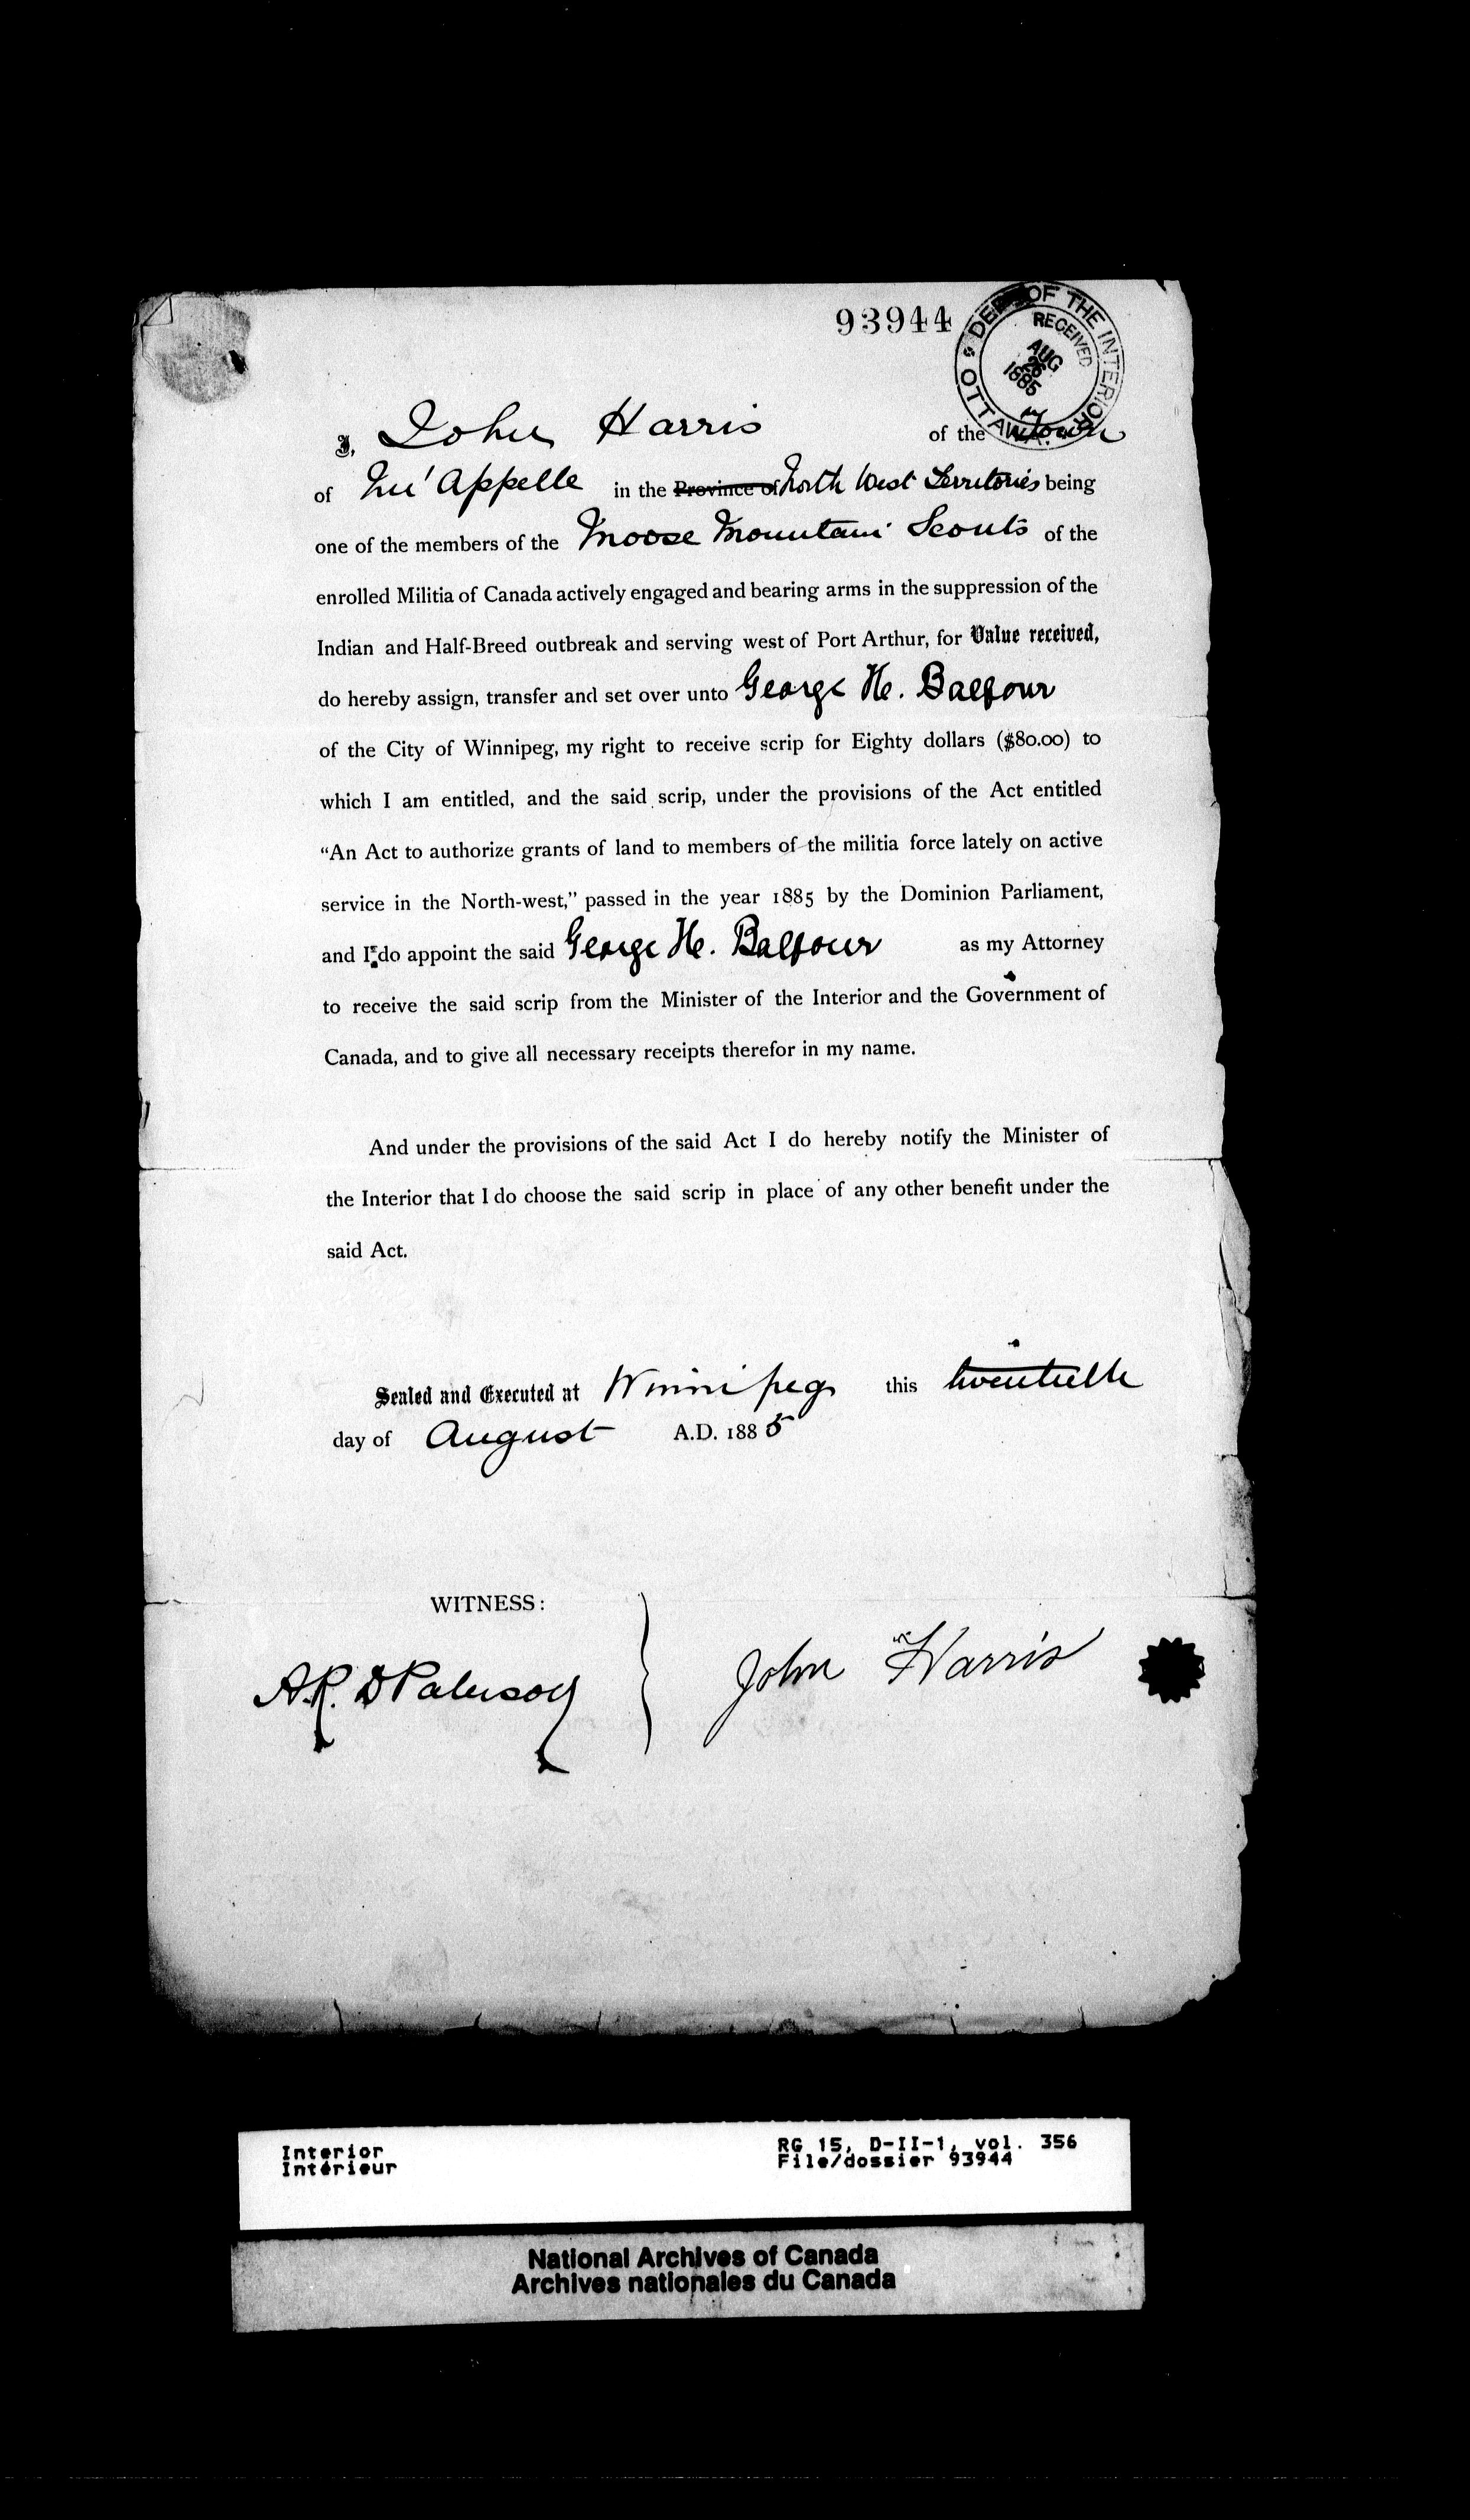 93944
DEPT. OF THE INTERIOR
OTTAWA
RECEIVED
AUG
26
1885
I, John Harris of the Town
of Qu'Appelle in the Province of North West Territories being
one of the members of the Moose Mountain Scouts of the
enrolled Militia of Canada actively engaged and bearing arms in the suppression of the
Indian and Half-Breed outbreak and serving west of Port Arthur, for Value received,
do hereby assign, transfer and set over unto George H. Balfour
of the City of Winnipeg, my right to receive scrip for Eighty dollars ($80.00) to
which I am entitled, and the said scrip, under the provisions of the Act entitled
“An Act to authorize grants of land to members of the militia force lately on active
service in the North-west,” passed in the year 1885 by the Dominion Parliament,
and I do appoint the said George H. Balfour as my Attorney
to receive the said scrip from the Minister of the Interior and the Government of
Canada, and to give all necessary receipts therefor in my name.
And under the provisions of the said Act I do hereby notify the Minister of
the Interior that I do choose the said scrip in place of any other benefit under the
said Act.
Sealed and Executed at Winnipeg this twentieth
day of August A.D. 1885
WITNESS:
A.R. D Paterson
John Harris
Interior
Intérieur
RG 15, D-II-1, vol. 356
File/dossier 93944
National Archives of Canada
Archives nationales du Canada